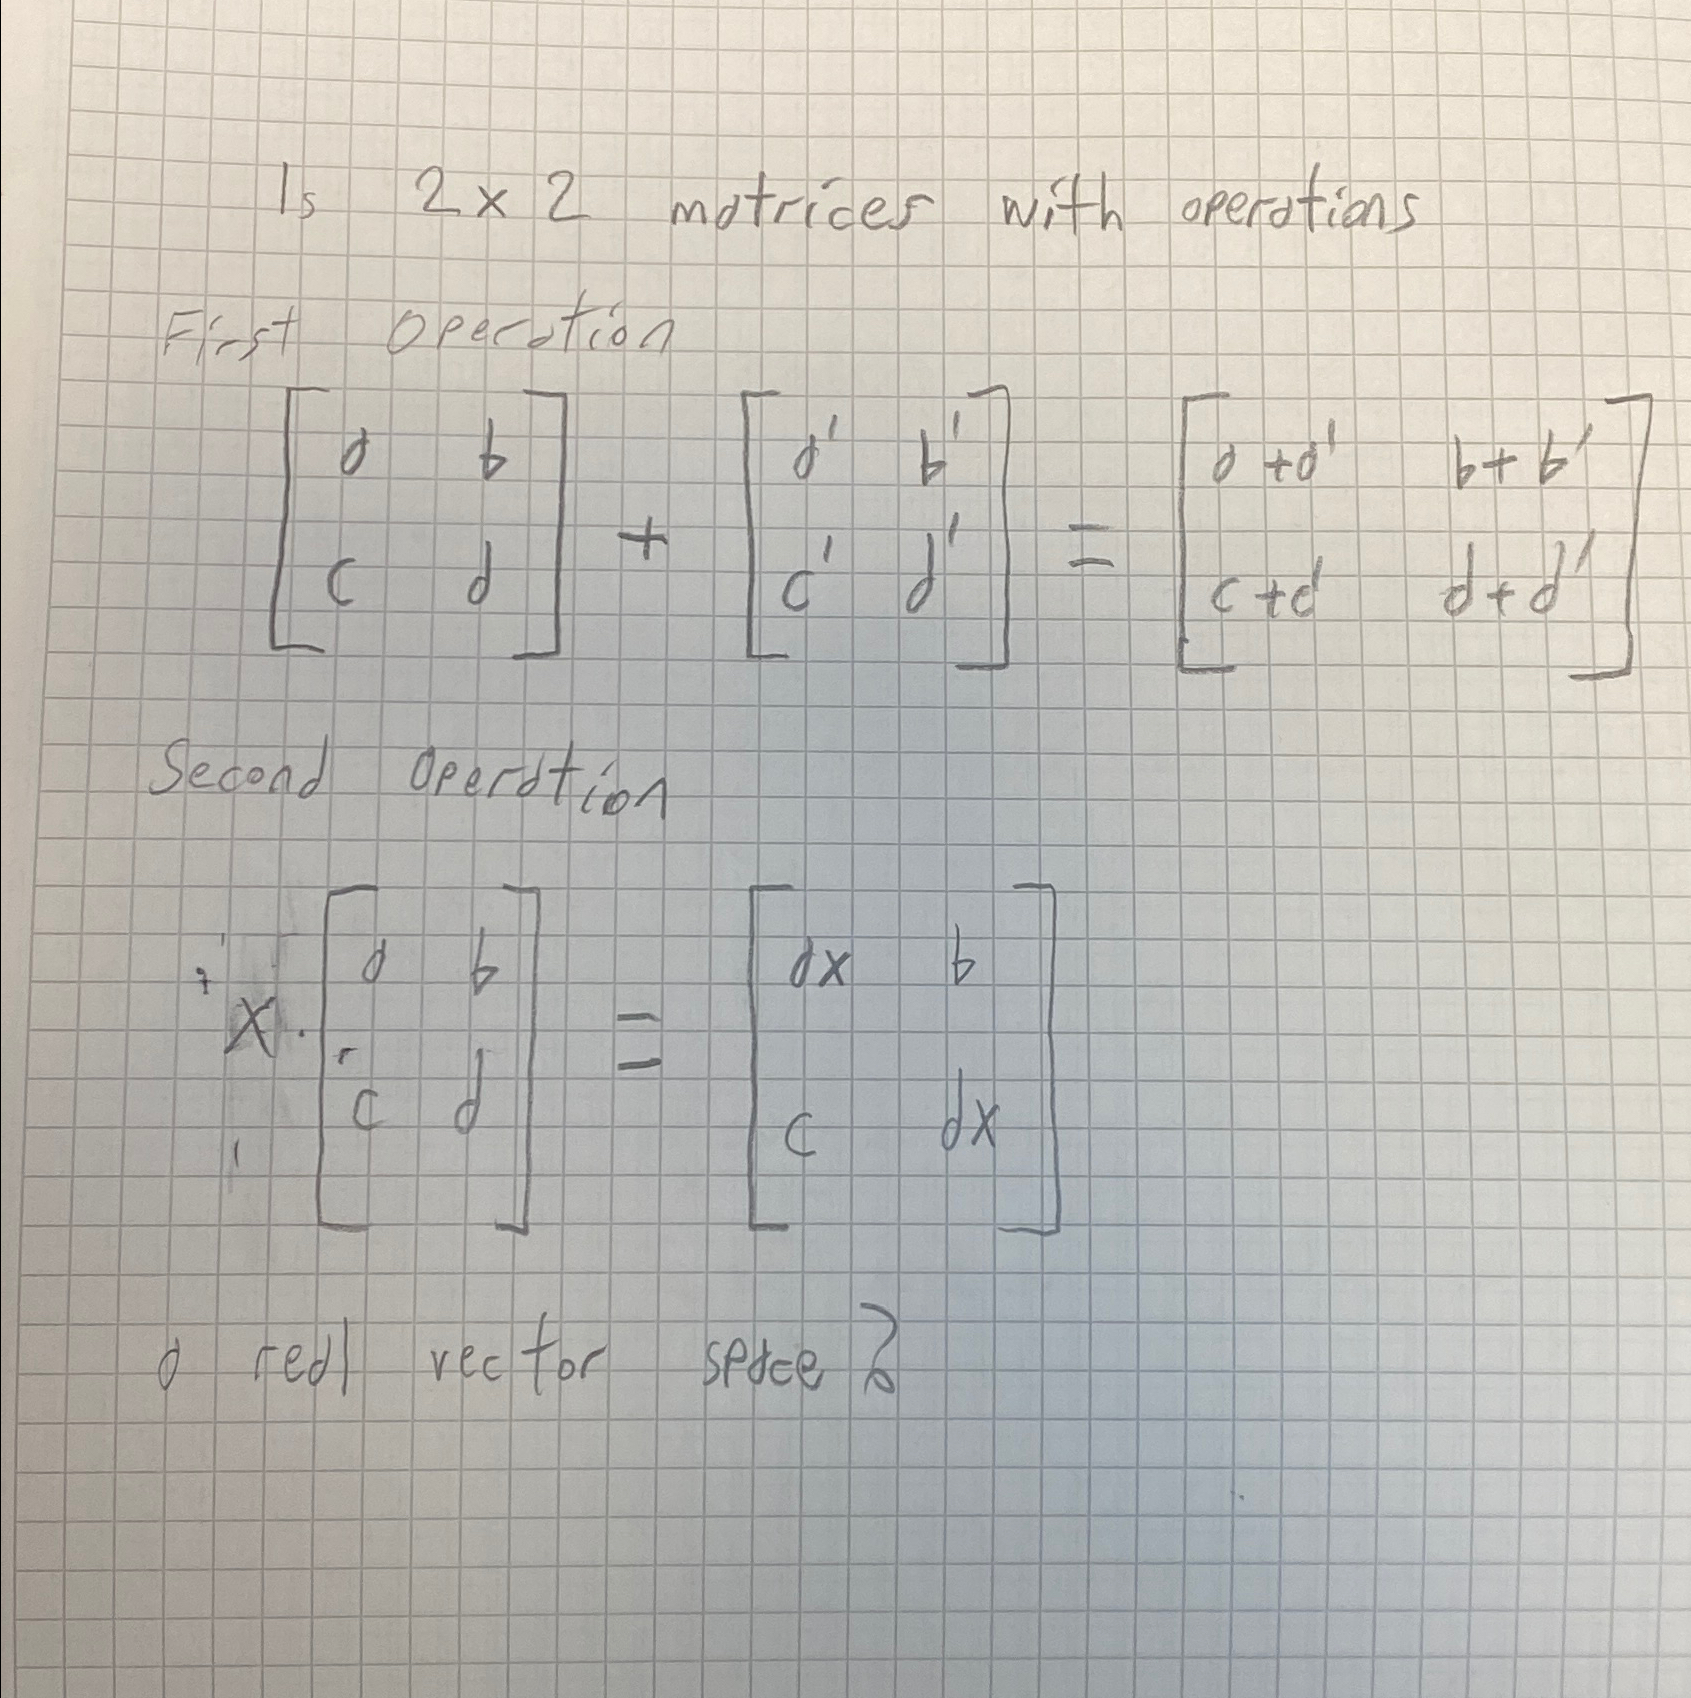 Is 2x2 matrices with operations
First Operation
[a b; c d] + [a' b'; c' d'] = [a+a' b+b'; c+d d+d']
Second Operation
x · [a b; c d] = [ax b; c dx]
a real vector space?